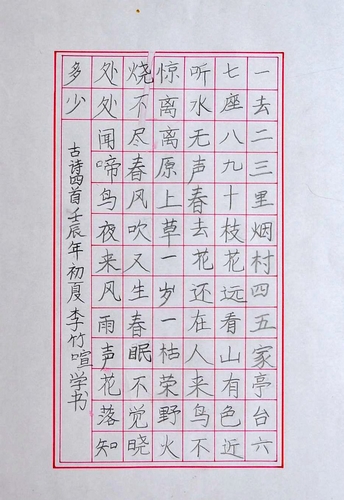 一去二三里烟村四五家亭台六
七座八九十枝花远看山有色近
听水无声春去花还在人来鸟不
惊离离原上草一岁一枯荣野火
烧不尽春风吹又生春眠不觉晓
处处闻啼鸟夜来风雨声花落知
多少
古诗四首壬辰年初夏李竹喧学书